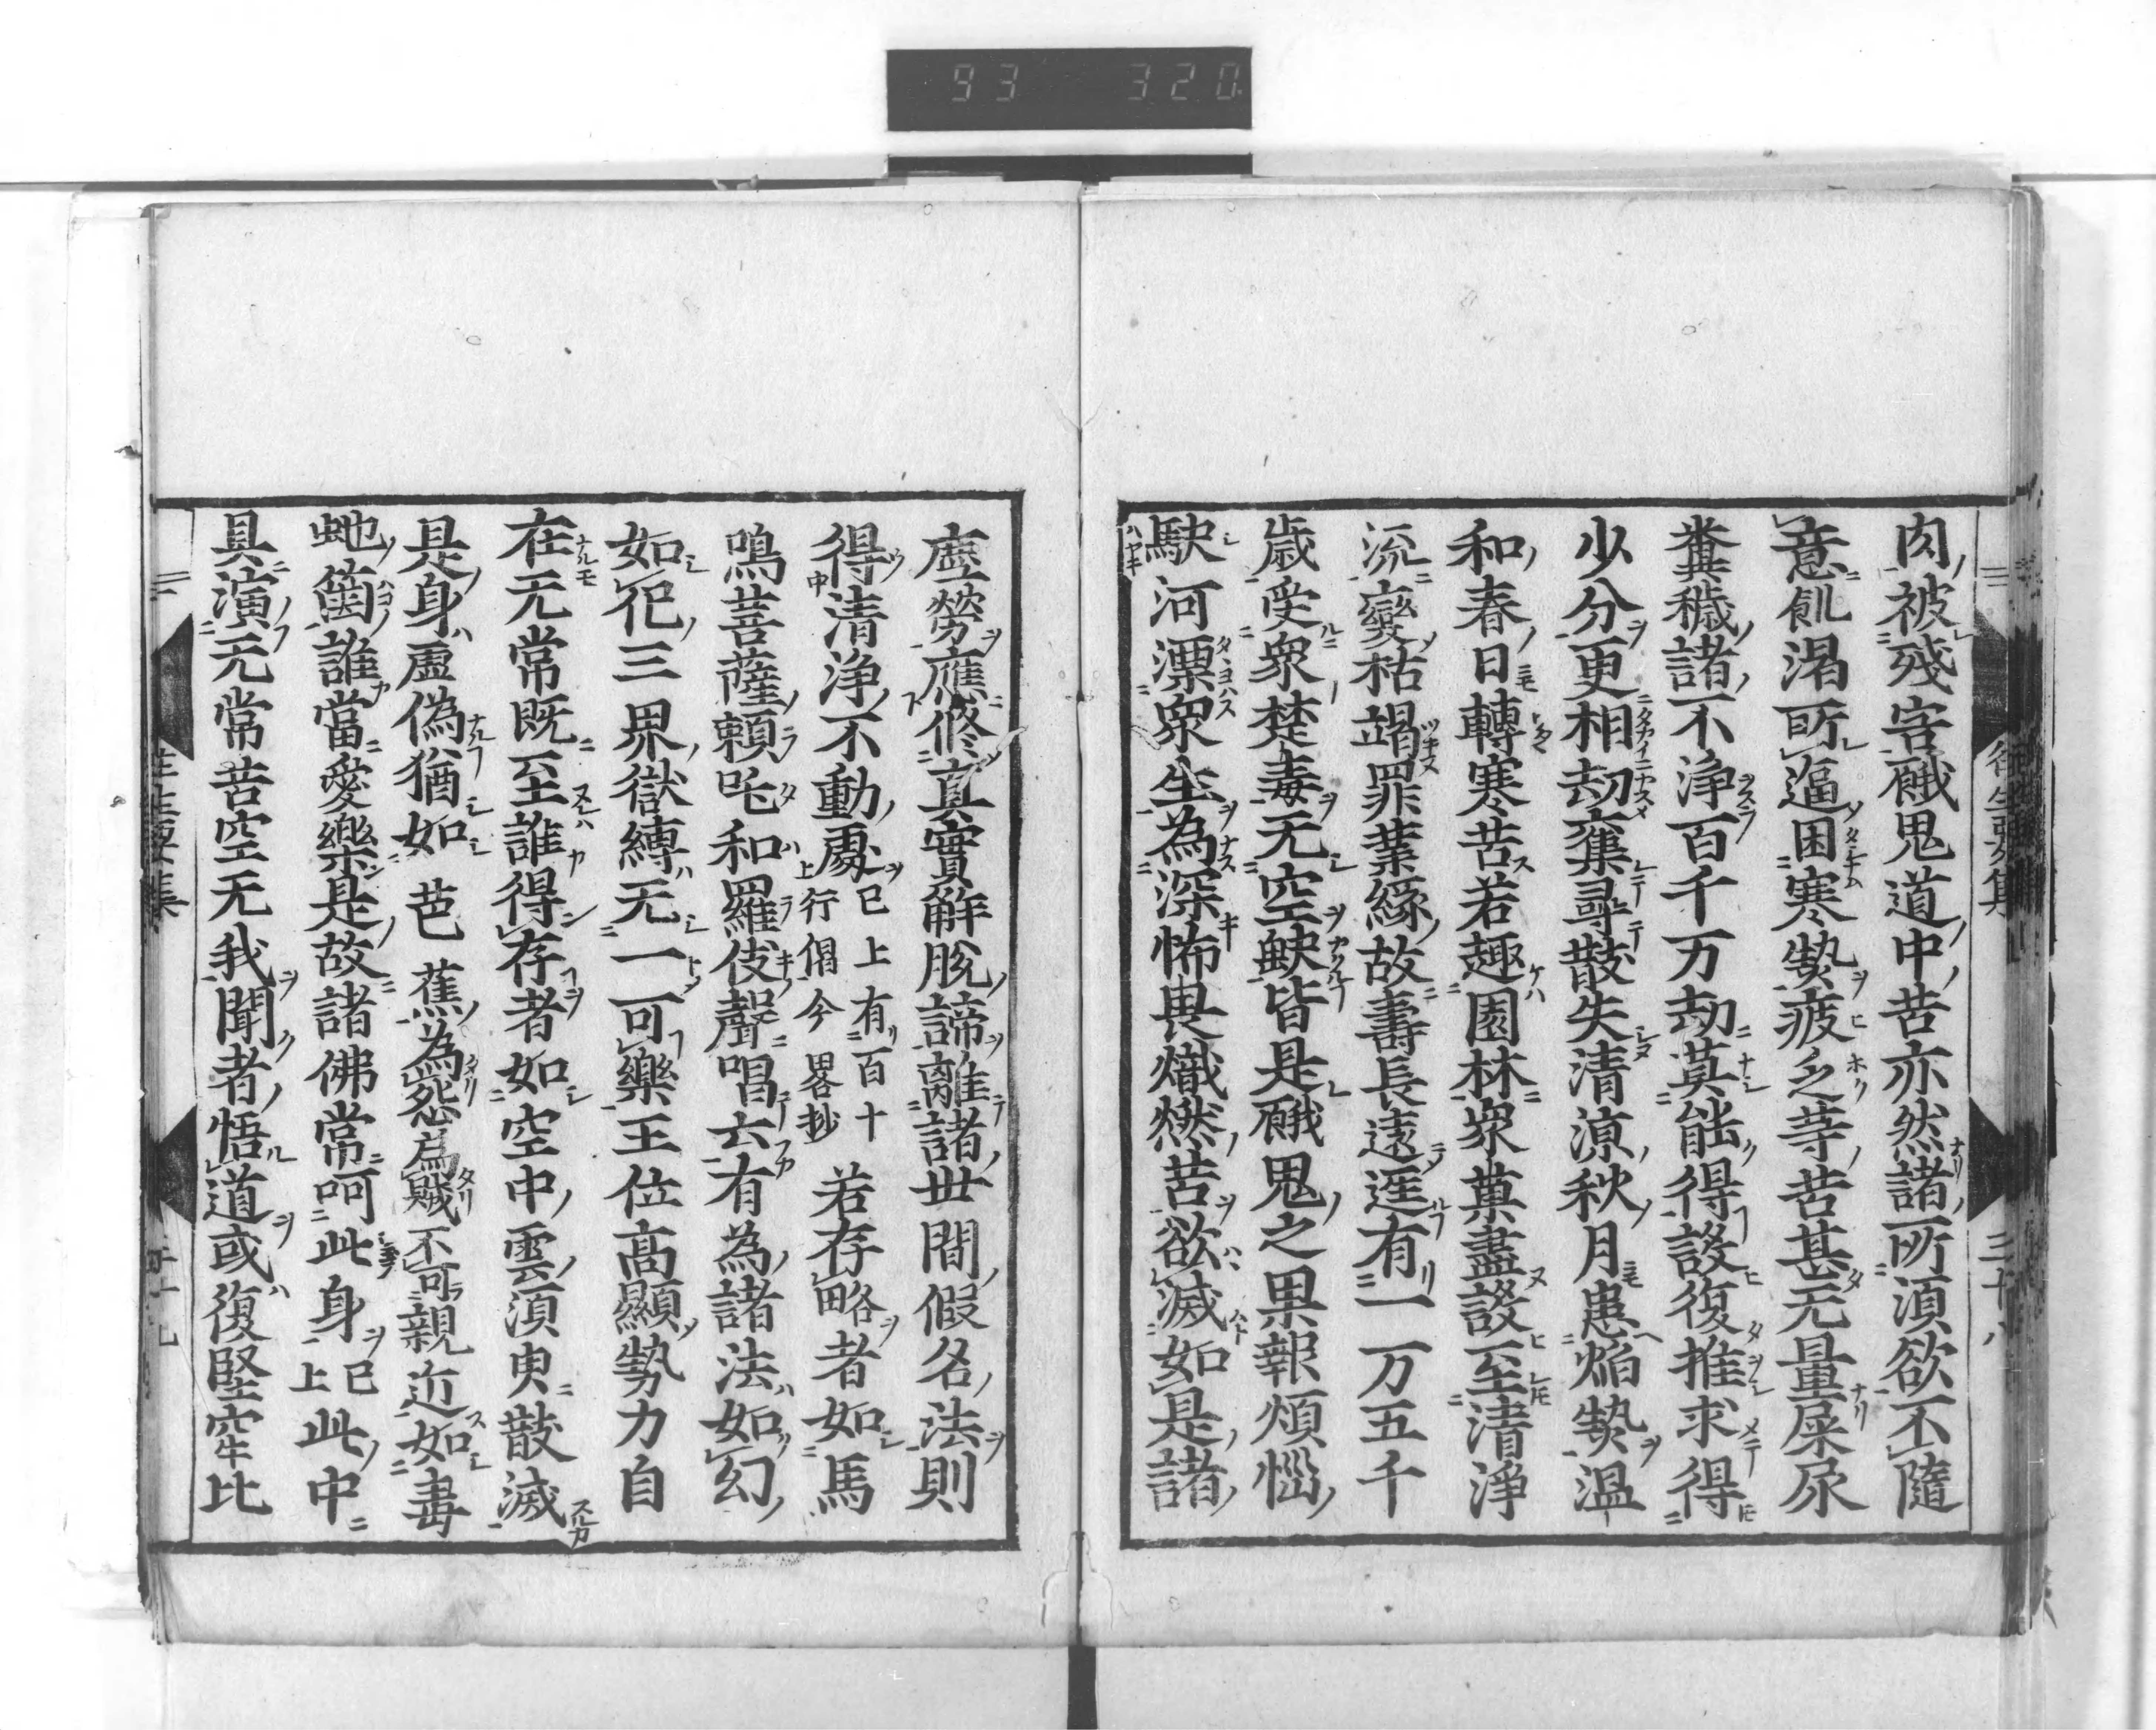 93 320
肉被残害餓鬼道中苦亦然諸所湏欲不隨
意飢渴所逼困寒𤍠疲乏等苦甚无量屎尿
糞穢諸不淨百千万劫莫能得設復推求得
少分更相劫奪尋散失清涼秋月患焔𤍠温
和春日轉寒苦若趣園林衆菓盡設至清淨
流變枯竭罪業緣故壽長遠逕有一万五千
歲受衆楚毒无空缺皆是餓鬼之果報煩惱
駃河漂衆生為深怖畏熾燃苦欲滅如是諸
虗勞應修真實解脫諦離諸世間假名法則
得清淨不動處已上有百十行偈今畧抄若存略者如馬
鳴菩薩頼吒和羅伎聲唱云有為諸法如幻
如化三界獄縛无一可樂王位高顯勢力自
在无常既至誰得存者如空中雲湏臾散滅
是身虛偽猶如芭蕉為怨爲賊不可親近如毒
虵篋誰當愛樂是故諸佛常呵此身已上此中
具演无常苦空无我聞者悟道或復堅牢比
往生要集
三十八